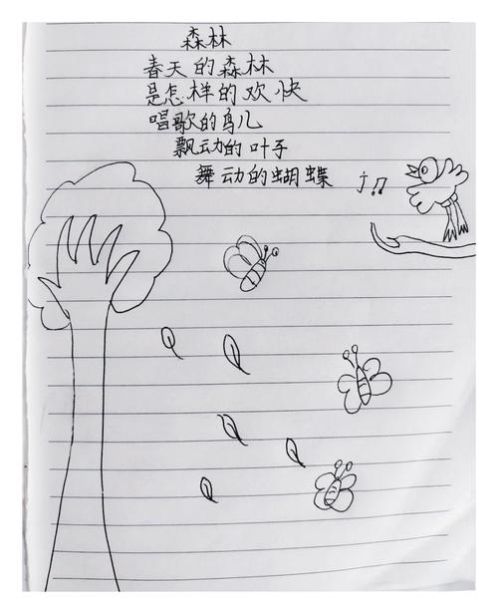 森林
春天的森林
是怎样的欢快
唱歌的鸟儿
飘动的叶子
舞动的蝴蝶